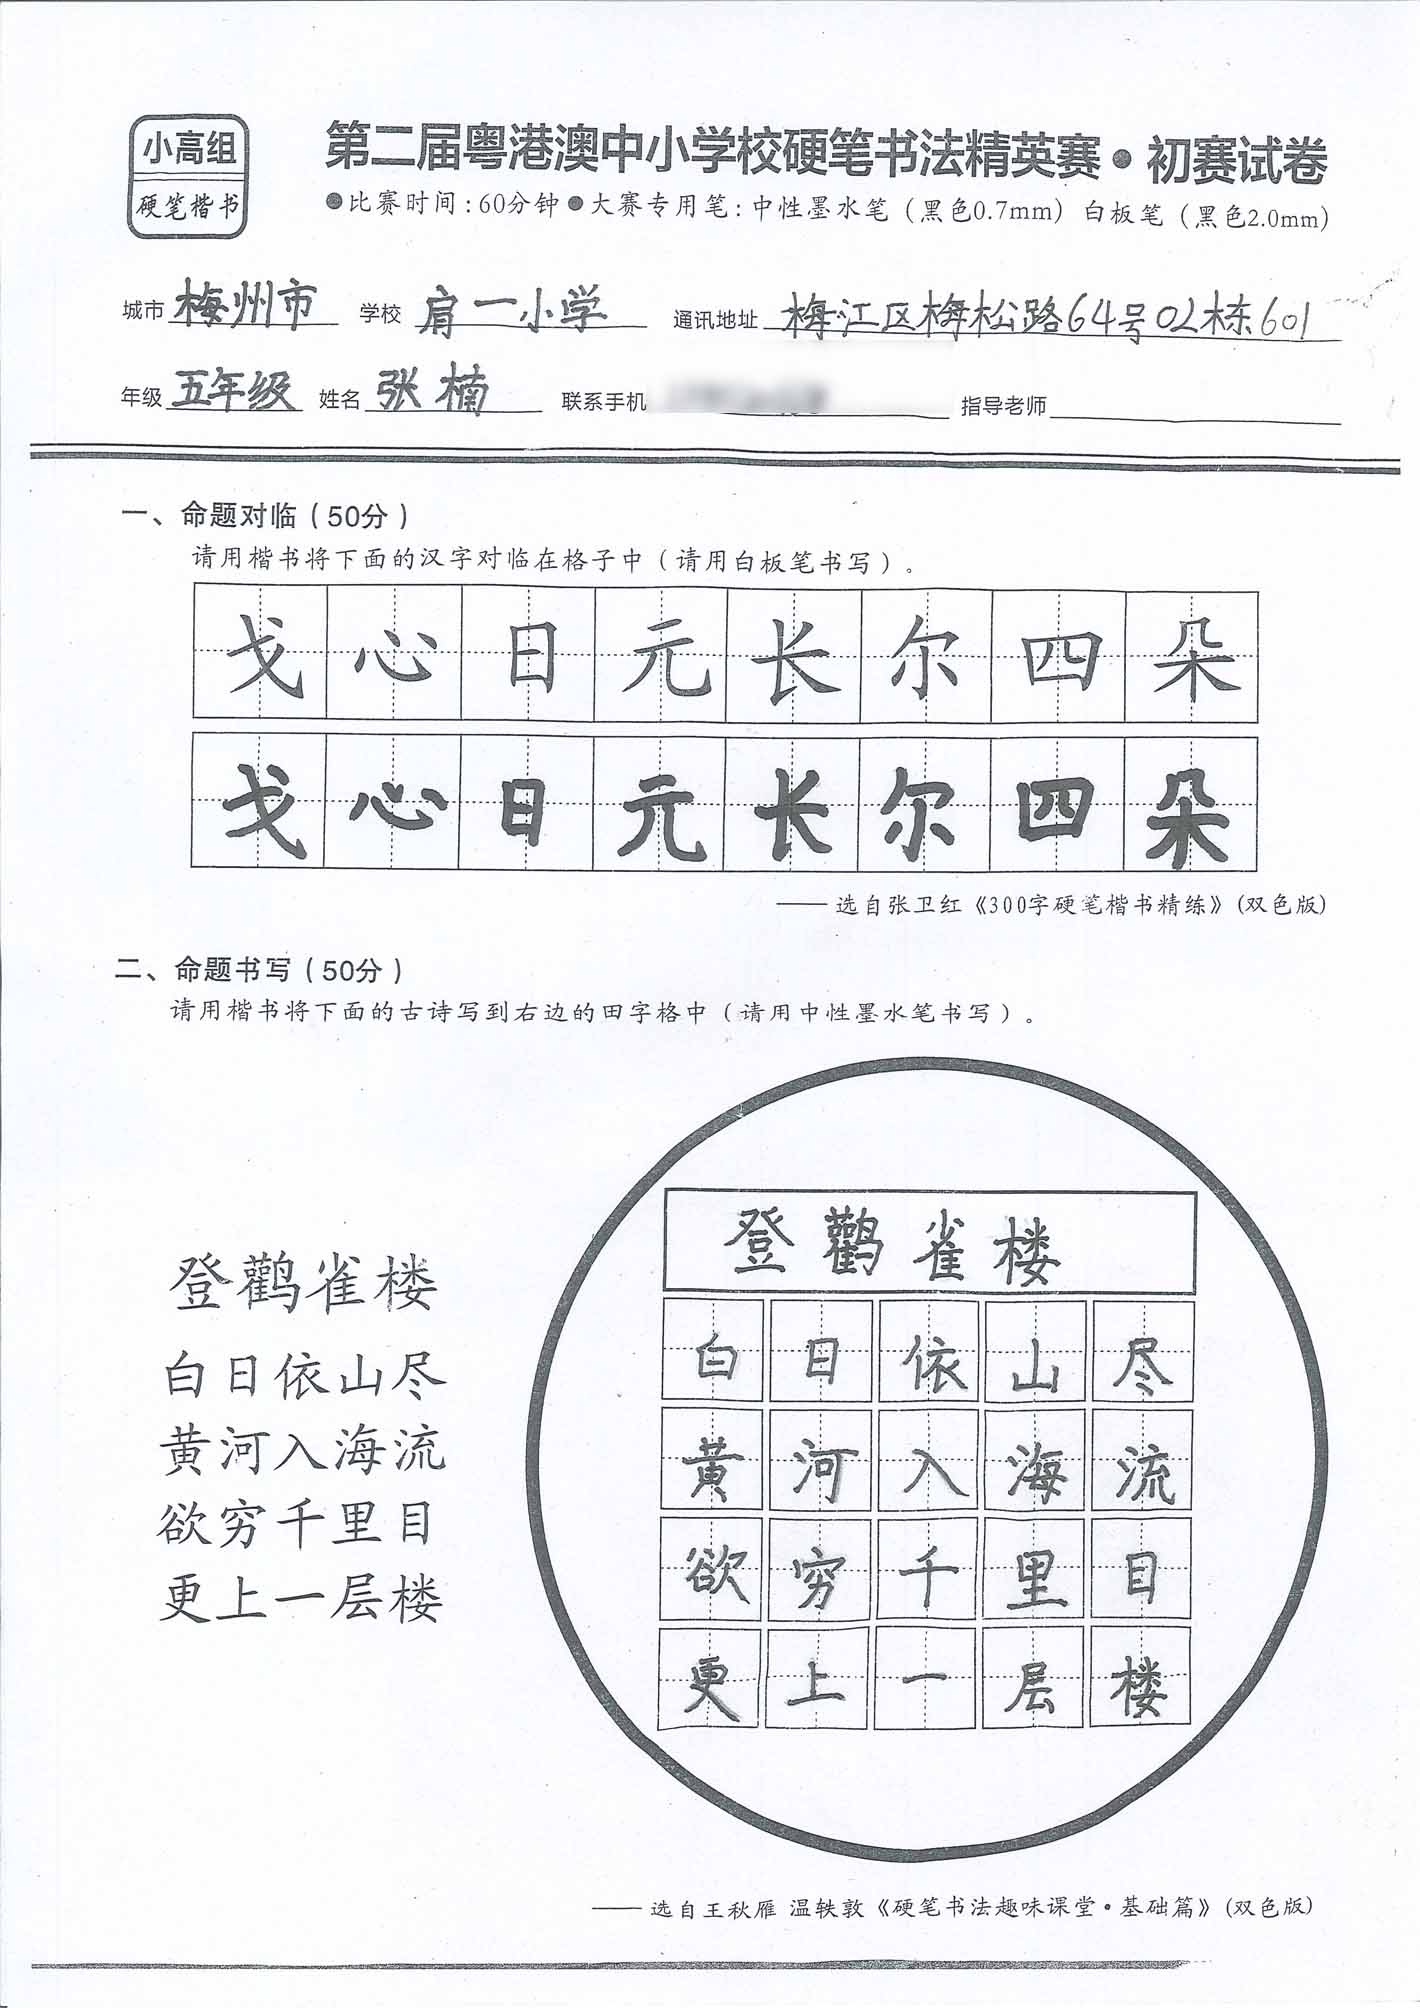 小高组
硬笔楷书
第二届粤港澳中小学校硬笔书法精英赛•初赛试卷
●比赛时间:60分钟●大赛专用笔:中性墨水笔（黑色0.7mm）白板笔（黑色2.0mm）
城市 梅州市 学校 肩一小学 通讯地址 梅江区梅松路64号02栋601
年级 五年级 姓名 张楠 联系手机 指导老师
一、命题对临（50分）
请用楷书将下面的汉字对临在格子中（请用白板笔书写）。
戈心日元长尔四朵
戈心日元长尔四朵
——选自张卫红《300字硬笔楷书精练》(双色版)
二、命题书写（50分）
请用楷书将下面的古诗写到右边的田字格中（请用中性墨水笔书写）。
登鹳雀楼
白日依山尽
黄河入海流
欲穷千里目
更上一层楼
登鹳雀楼
白日依山尽
黄河入海流
欲穷千里目
更上一层楼
——选自王秋雁 温轶敦《硬笔书法趣味课堂·基础篇》(双色版)